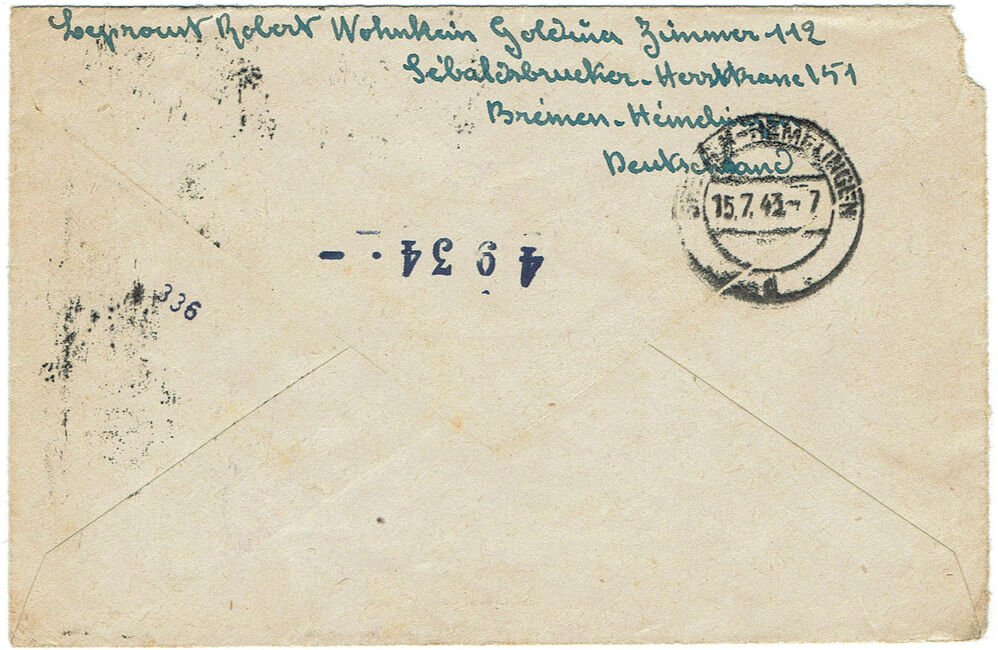 Leprout Robert Wohnheim Goldina Zimmer 112
Sebaldsbrucker-Herrstrasse 151
Bremen-Hemelingen
Deutschland
EN-HEMELINGEN
15.7.43-7
d
4934.-
336